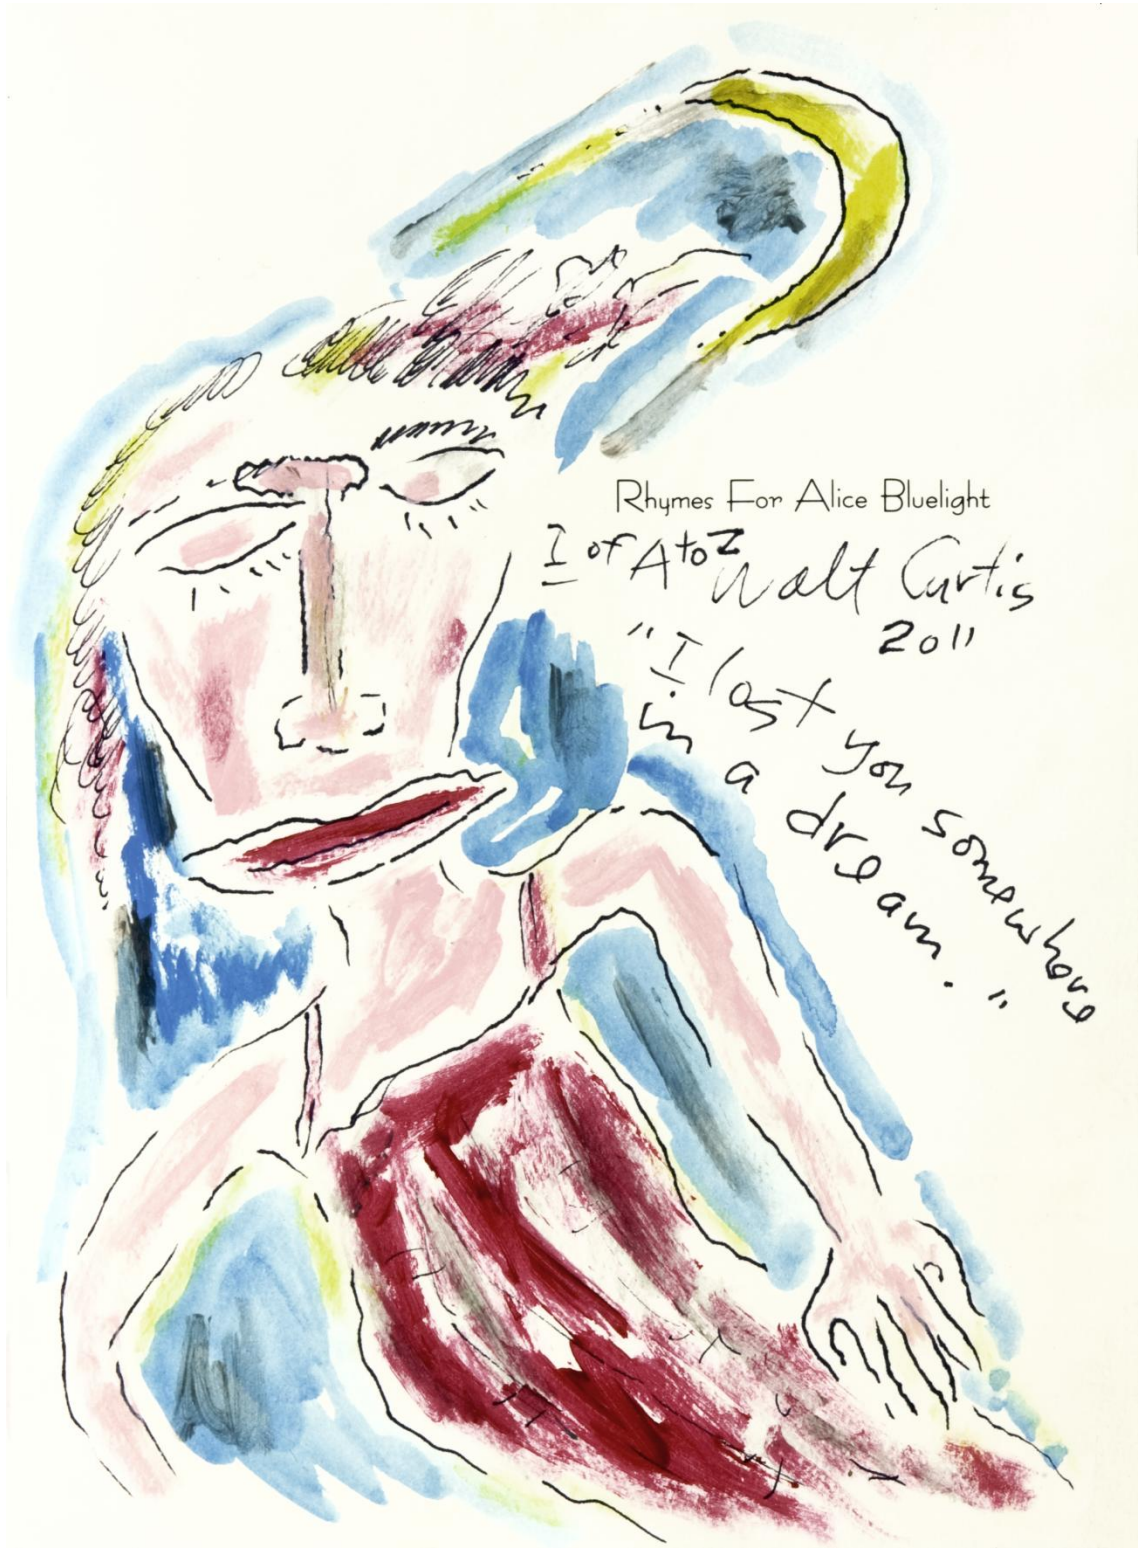 Rhymes For Alice Bluelight
I of A to Z
Walt Curtis
2011
"I lost you somewhere
in a dream."